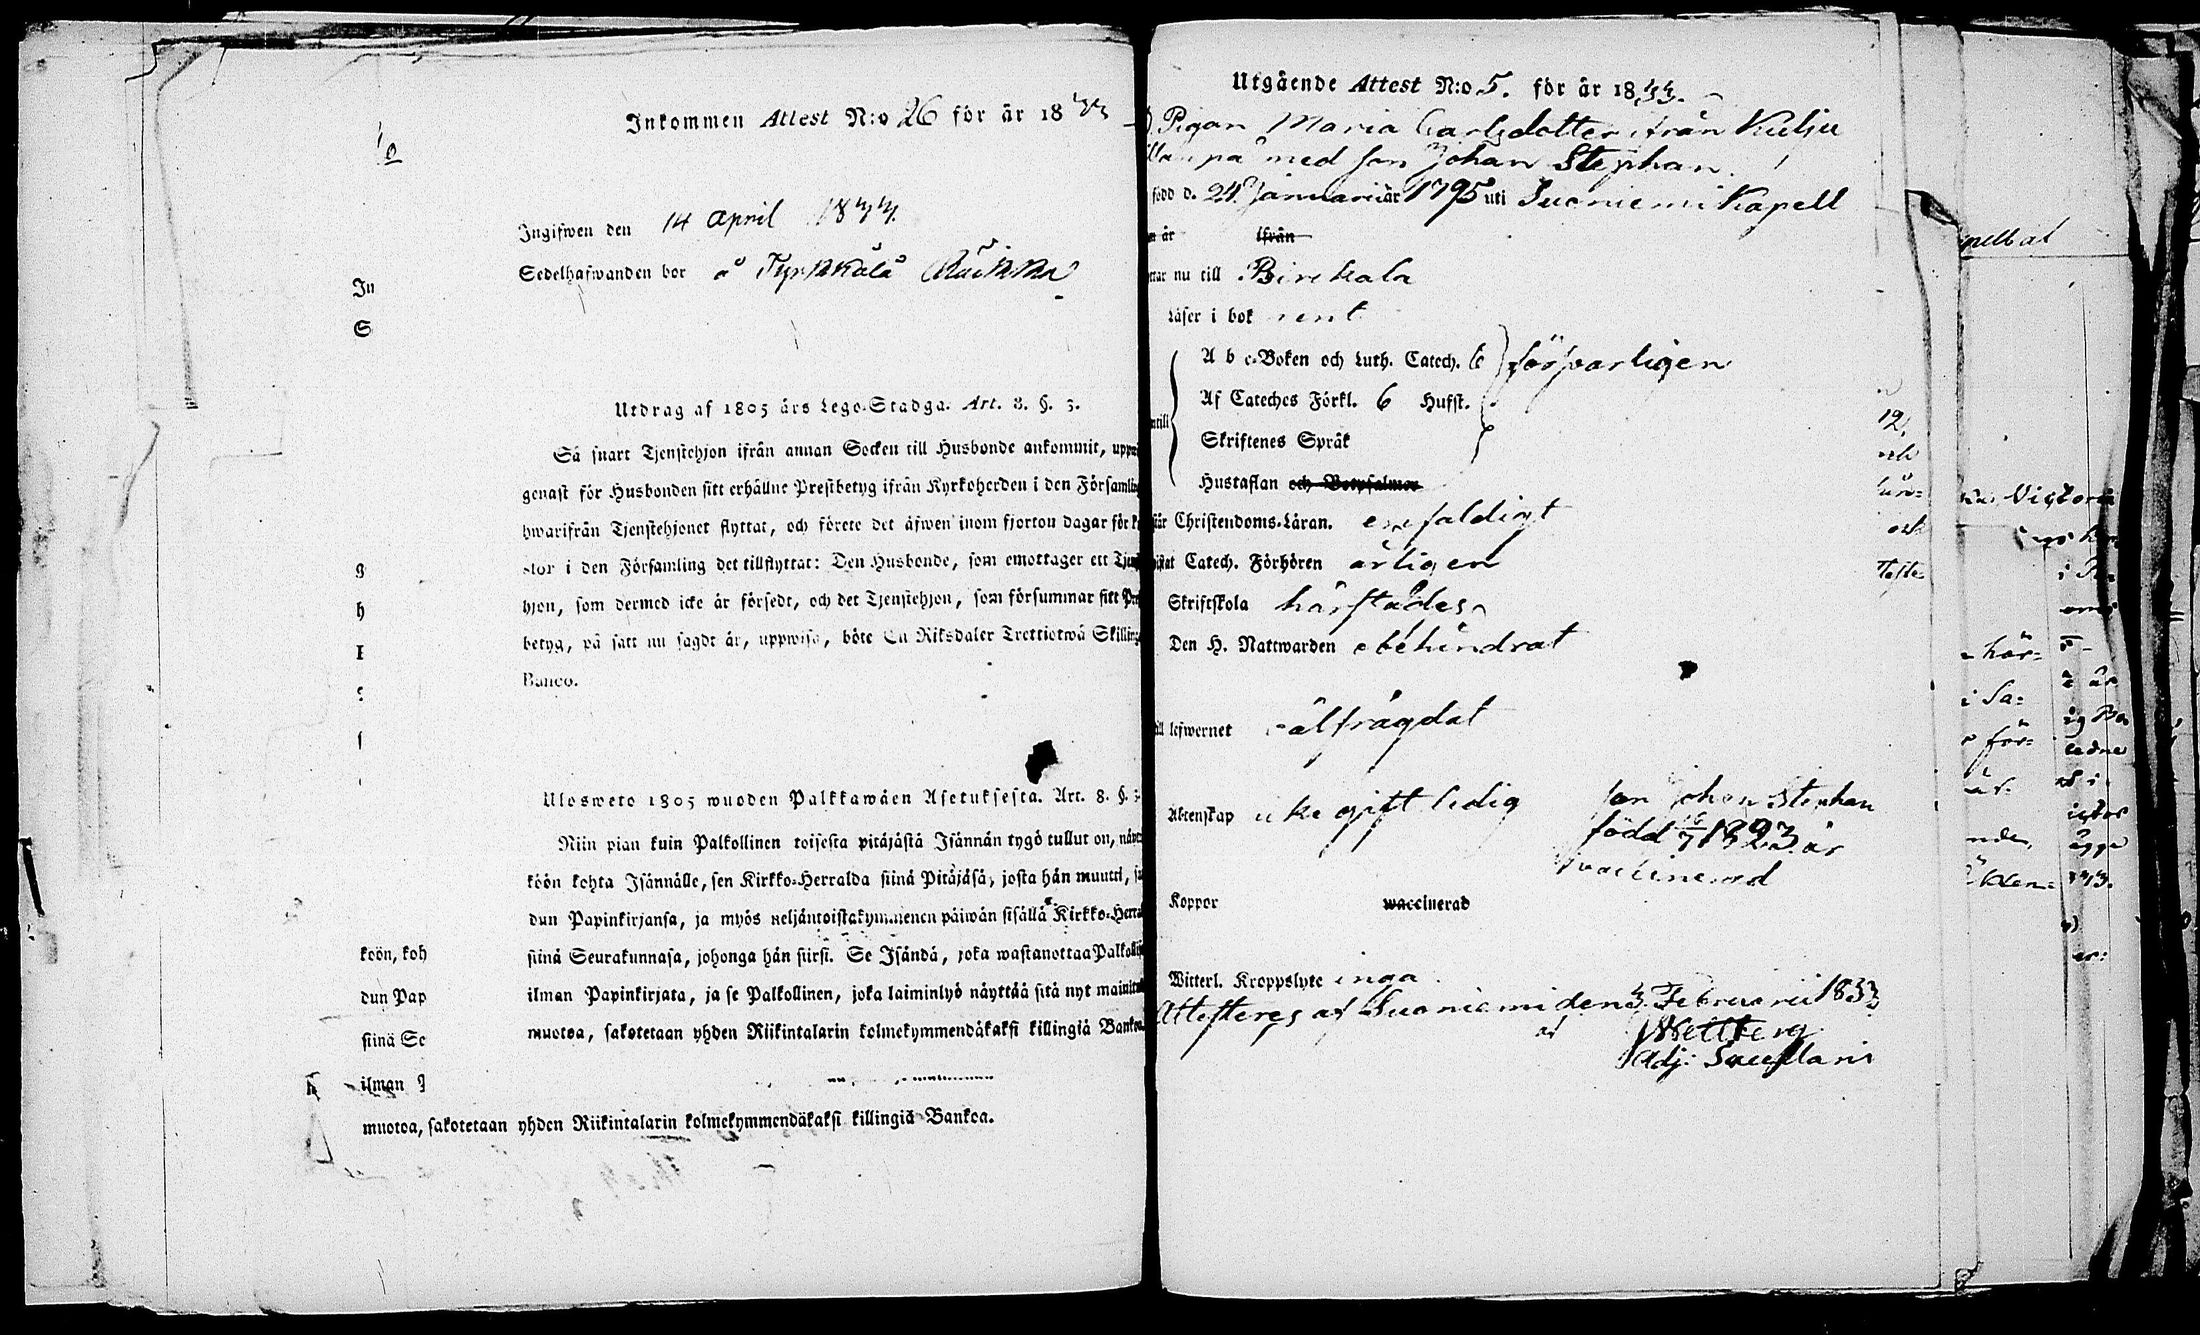 Inkommen Attest N:o 26 för år 1833
Ingifwen den 14 April 1833.
Sedelhafwanden bor å Tyrkkölä
In
S
Utdrag af 1805 års Lego-Stadga. Art. 8. §. 3.
Så snart Tjenstehjon ifrån annan Socken till Husbonde ankommit, uppwi
genast för Husbonden sitt erhållne Prestbetyg ifrån Kyrkoherden i den Församling
hwarifrån Tjenstehjonet flyttat, och förete det äfwen inom fjorton dagar för
stor i den Församling det tillflyttat: Den Husbonde, som emottager ett Tjenst
hjon, som dermed icke är försedt, och det Tjenstehjon, som försummar sitt Prest
betyg, på sätt nu sagdt är, uppwisa, böte En Riksdaler Trettiotwå Skilling
Banco.
g
h
Ulosweto 1805 wuoden Palkkawäen Asetuksesta. Art. 8. §. 3.
Niin pian kuin Palkollinen toisesta pitäjästä Isännän tygö tullut on, näyt
köön kohta Isännälle, sen Kirkko-Herralda siinä Pitäjäsä, josta hän muutti, sa
dun Papinkirjansa, ja myös neljäntoistakymmenen päiwän sisällä Kirkko-Herra
siinä Seurakunnasa, johonga hän siirsi. Se Isändä, joka wastanottaa Palkolli
ilman Papinkirjata, ja se Palkollinen, joka laiminlyö näyttää sitä nyt mainitu
muotoa, sakotetaan yhden Riikintalarin kolmekymmendäkaksi killingiä Bankoa.
köön, koh
dun Pap
siinä Se
ilman P
muotoa, sakotetaan yhden Riikintalarin kolmekymmendäkaksi killingiä Bankoa.
Utgående Attest N:o 5. för år 1833.
Pigan Maria Carlsdotter ifrån Kulju
på med son Johan Stephan
född d. 24 Januarii år 1795 uti Suoniemi Kapell
n år ifrån
ttar nu till Birkala
Läser i bok rent
A b c-Boken och Luth. Catech. 6 försvarligen
Af Cateches Förkl. 6 Hufst.
ntill
Skriftenes Språk
Hustaflan och Botpsalmer
står Christendoms-Läran. enfaldigt
wistat Catech. Förhören årligen
Skriftskola härstädes
Den H. Nattwarden obehindrat
till lefwernet välfrägdat
Äktenskap icke gift ledig
son Johan Stephan
född 16/7 1823 är
vaccinerad
Koppor waccinerad
Witterl. Kroppslyte inga
Attesteras af Suoniemi den 3 Februarii 1833
af
Wettberg
Adj: Sacellani
12.
pell at
Victoria
i Sa=
e för=